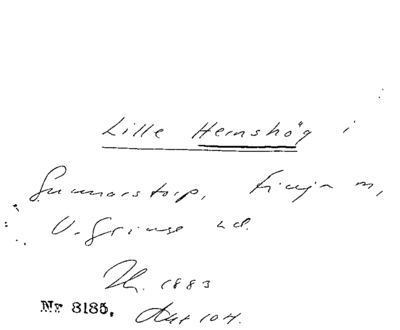 Lille Hemshög i
Gunnarstorp, Finja sn,
V. Göinge hd.
Th. 1883
Nr 8185. Akt 104.